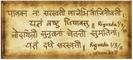 पावका नः सरस्वती वाजेभिर्वाजिनीवती
यज्ञं वष्टु धियावसुः Rigveda 1/3/
चोदयित्री सूनृतानां चेतन्ती सुमतीनां
यज्ञं दधे सरस्वती Rigveda